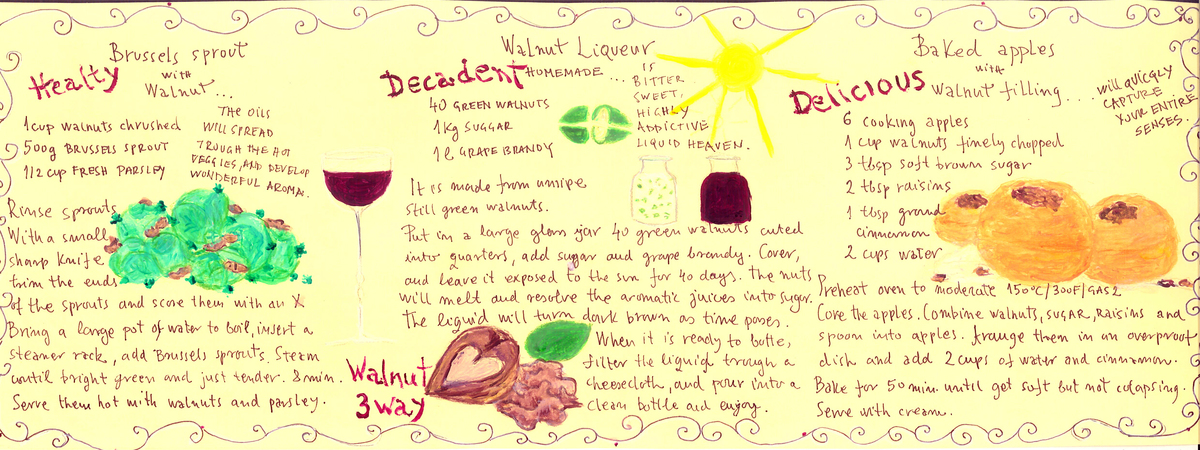 Brussels sprout
with
Walnut...
Healty
THE OILS
WILL SPREAD
TROUGH THE HOT
VEGGIES, AND DEVELOP
WONDERFUL AROMA.
1cup walnuts chrushed
500g BRUSSELS SPROUT
1/2 cup FRESH PARSLEY
Rinse sprouts
With a small
sharp knife
trim the ends
of the sprouts and score them with an X
Bring a large pot of water to boil, insert a
steamer rack, add Brussels sprouts. Steam
until bright green and just tender. 8 min.
Serve them hot with walnuts and parsley.
Walnut
3 way
Walnut Liqueur
Decadent
HOMEMADE...
IS
BITTER
SWEET,
HIGHLY
ADDICTIVE
LIQUID HEAVEN.
40 GREEN WALNUTS
1kg SUGGAR
1l GRAPE BRANDY
It is made from unripe
still green walnuts.
Put in a large glass jar 40 green walnuts cuted
into quarters, add sugar and grape brandy. Cover,
and leave it exposed to the sun for 40 days. The nuts
will melt and resolve the aromatic juices into sugar.
The liquid will turn dark brown as time poses.
When it is ready to botle,
filter the liquid trough a
cheesecloth, and pour into a
clean bottle and enjoy.
Baked apples
with
walnut filling....
Delicious
will quicgly
CAPTURE
YOUR ENTIRE
SENSES.
6 cooking apples
1 cup walnuts finely chopped
3 tbsp soft brown sugar
2 tbsp raisins
1 tbsp ground
cinnamon
2 cups water
Preheat oven to moderate 150°C/300F/GAS2
Core the apples. Combine walnuts, SUGAR, RAISINS and
spoon into apples. Arange them in an overproof
dish and add 2 cups of water and cinnamon.
Bake for 50 min. until get soft but not colapsing.
Serve with cream.